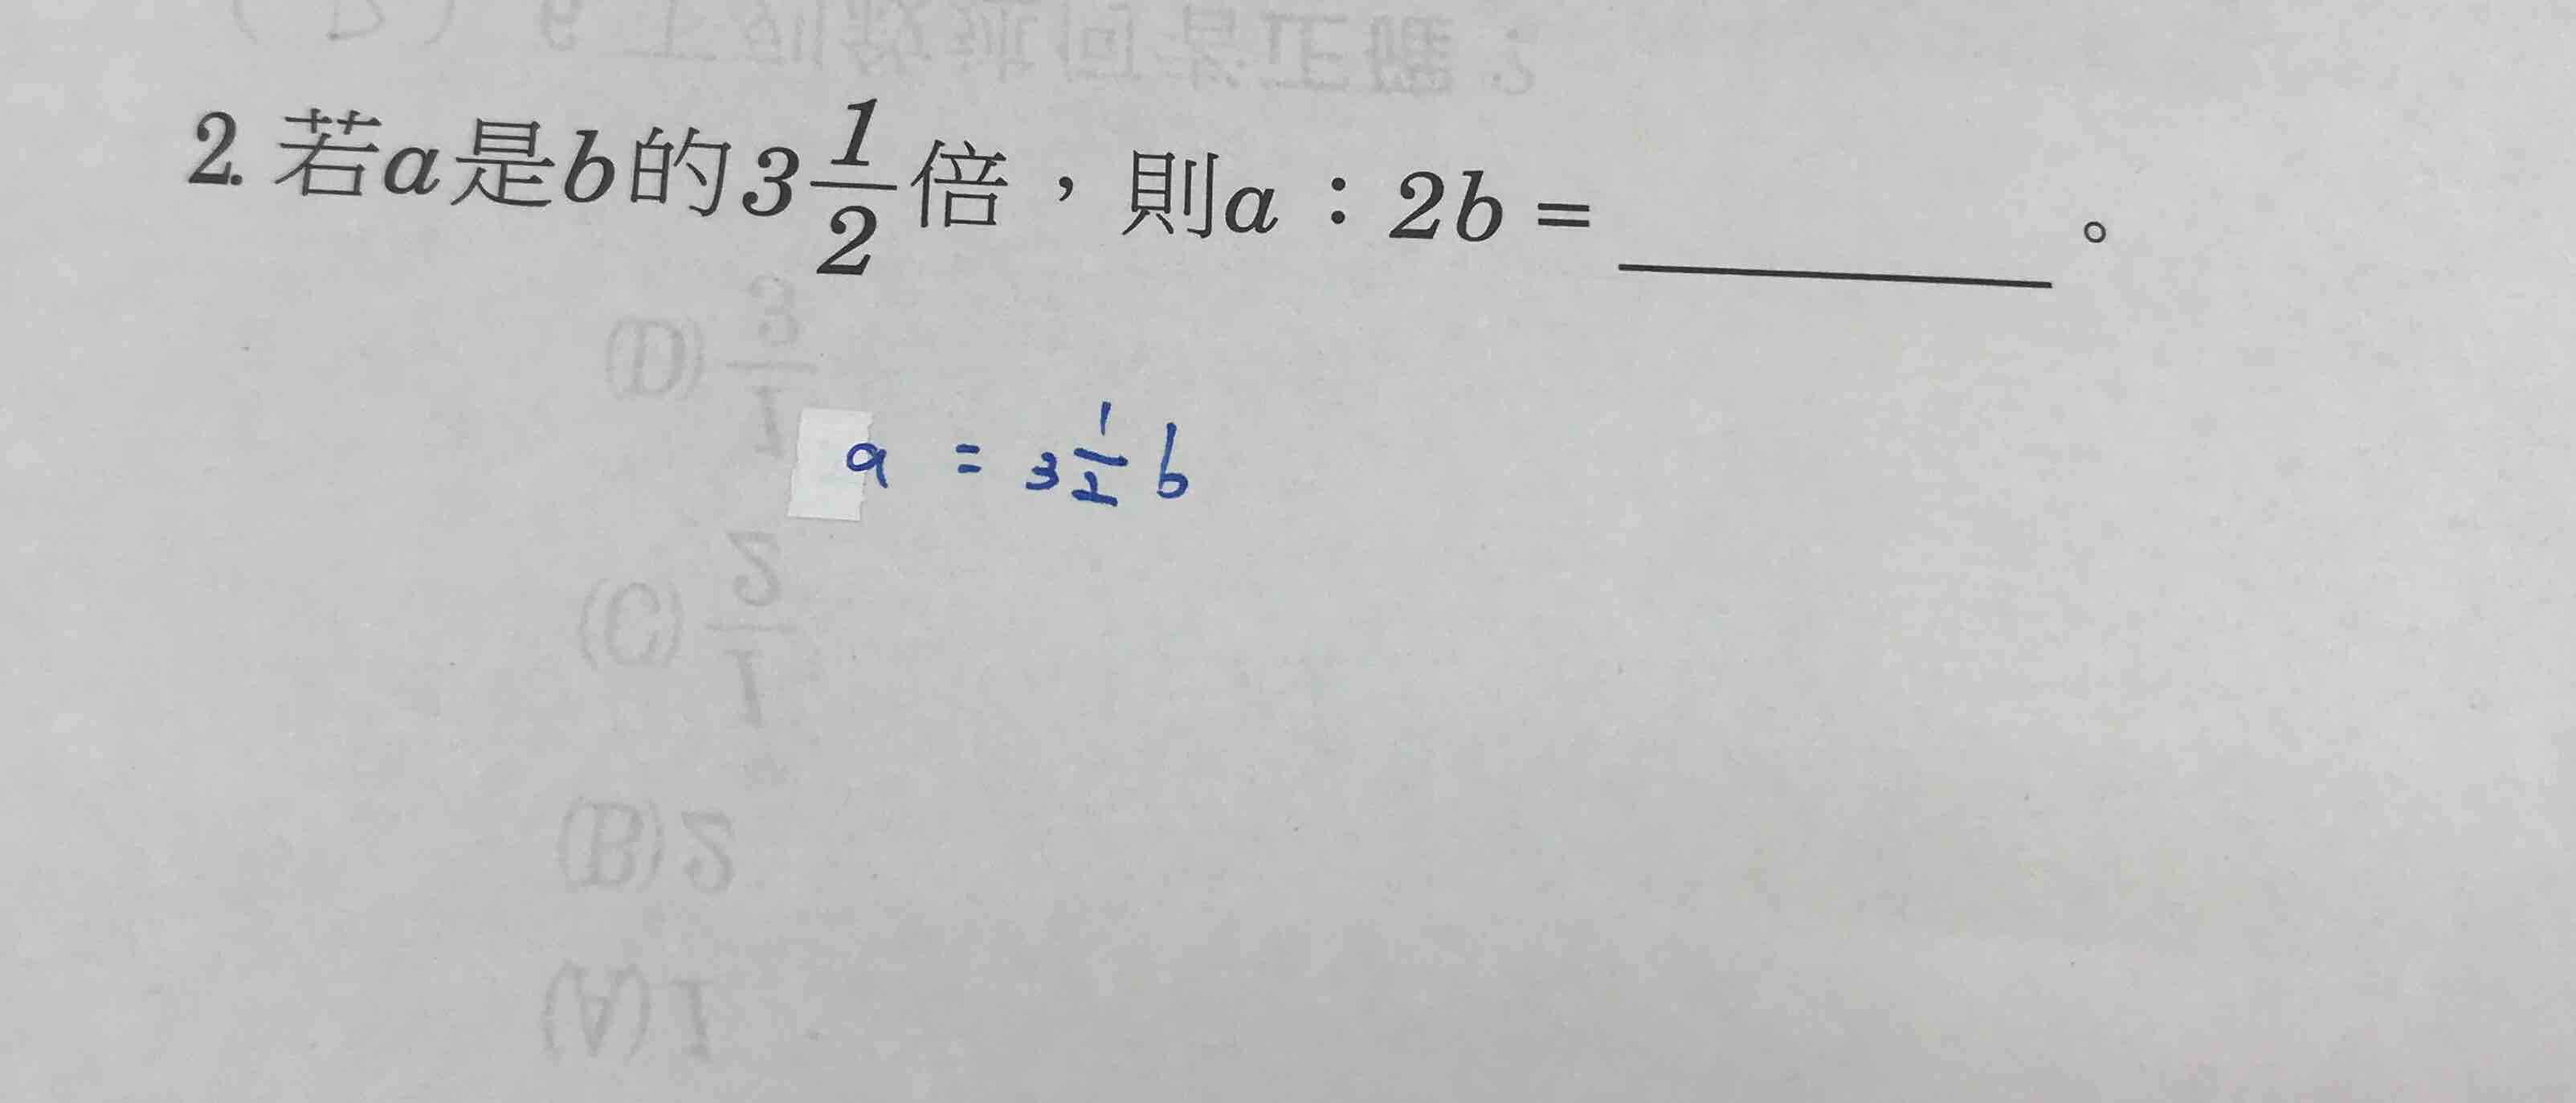 2. 若a是b的3\frac{1}{2}倍，則a：2b = ______ 。
a = 3\frac{1}{2} b